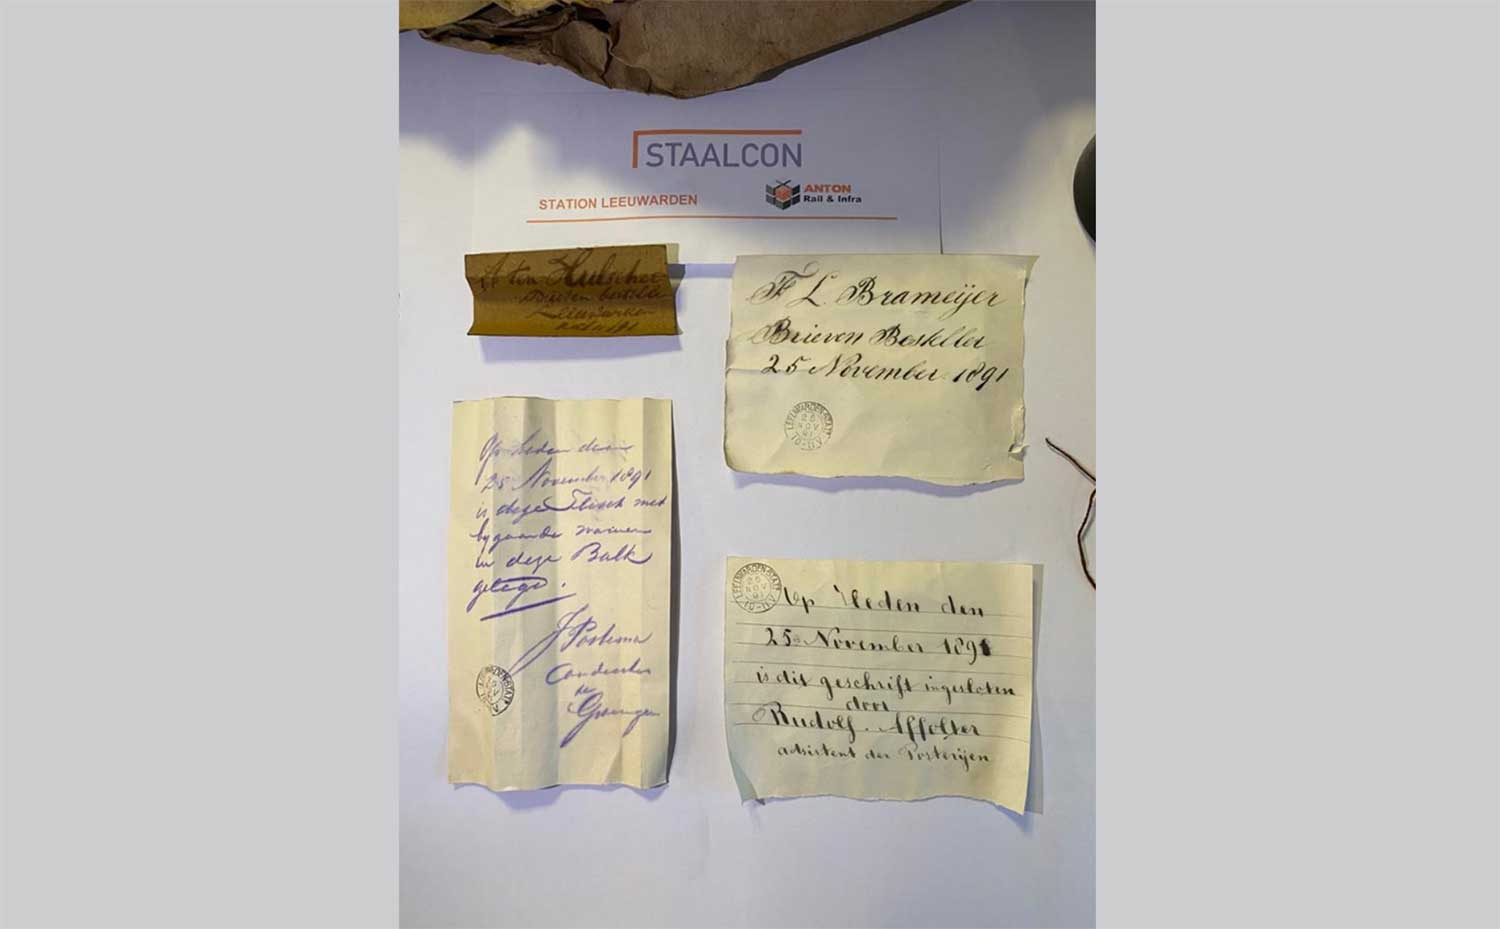 STAALCON
STATION LEEUWARDEN
ANTON
Rail & Infra
Hulscher
Leeuwarden
F L Brameijer
Brieven Besteller
25 November 1891
LEEUWARDEN-STAT
25
NOV
91
Op heden den
25 November 1891
is deze flesch met
bygaande
in deze Balk
gelegd.
J Postema
Conducteur
te
Groningen
LEEUWARDEN-STAT
25
NOV
91
Op Heden den
25 November 1891
is dit geschrift ingesloten
door
Rudolf Affolter
adsistent der Posterijen